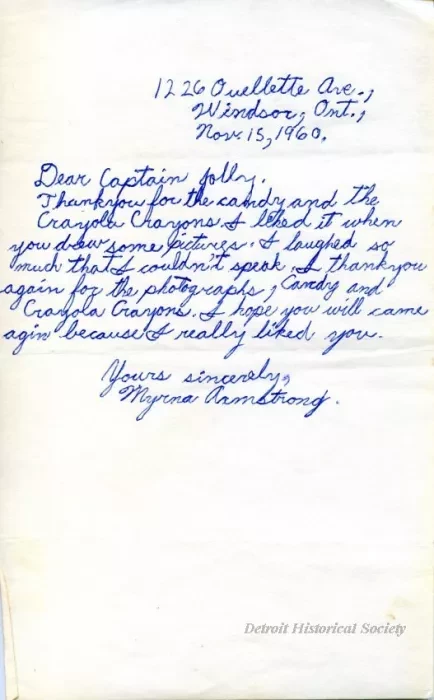 1226 Ouellette Ave.,
Windsor, Ont.,
Nov. 15, 1960.
Dear Captain Jolly,
Thankyou for the candy and the
Crayola Crayons. I liked it when
you drew some pictures. I laughed so
much that I couldn't speak. I thankyou
again for the photographs, Candy and
Crayola Crayons. I hope you will came
agin because I really liked you.
Yours sincerely,
Myrna Armstrong.
Detroit Historical Society